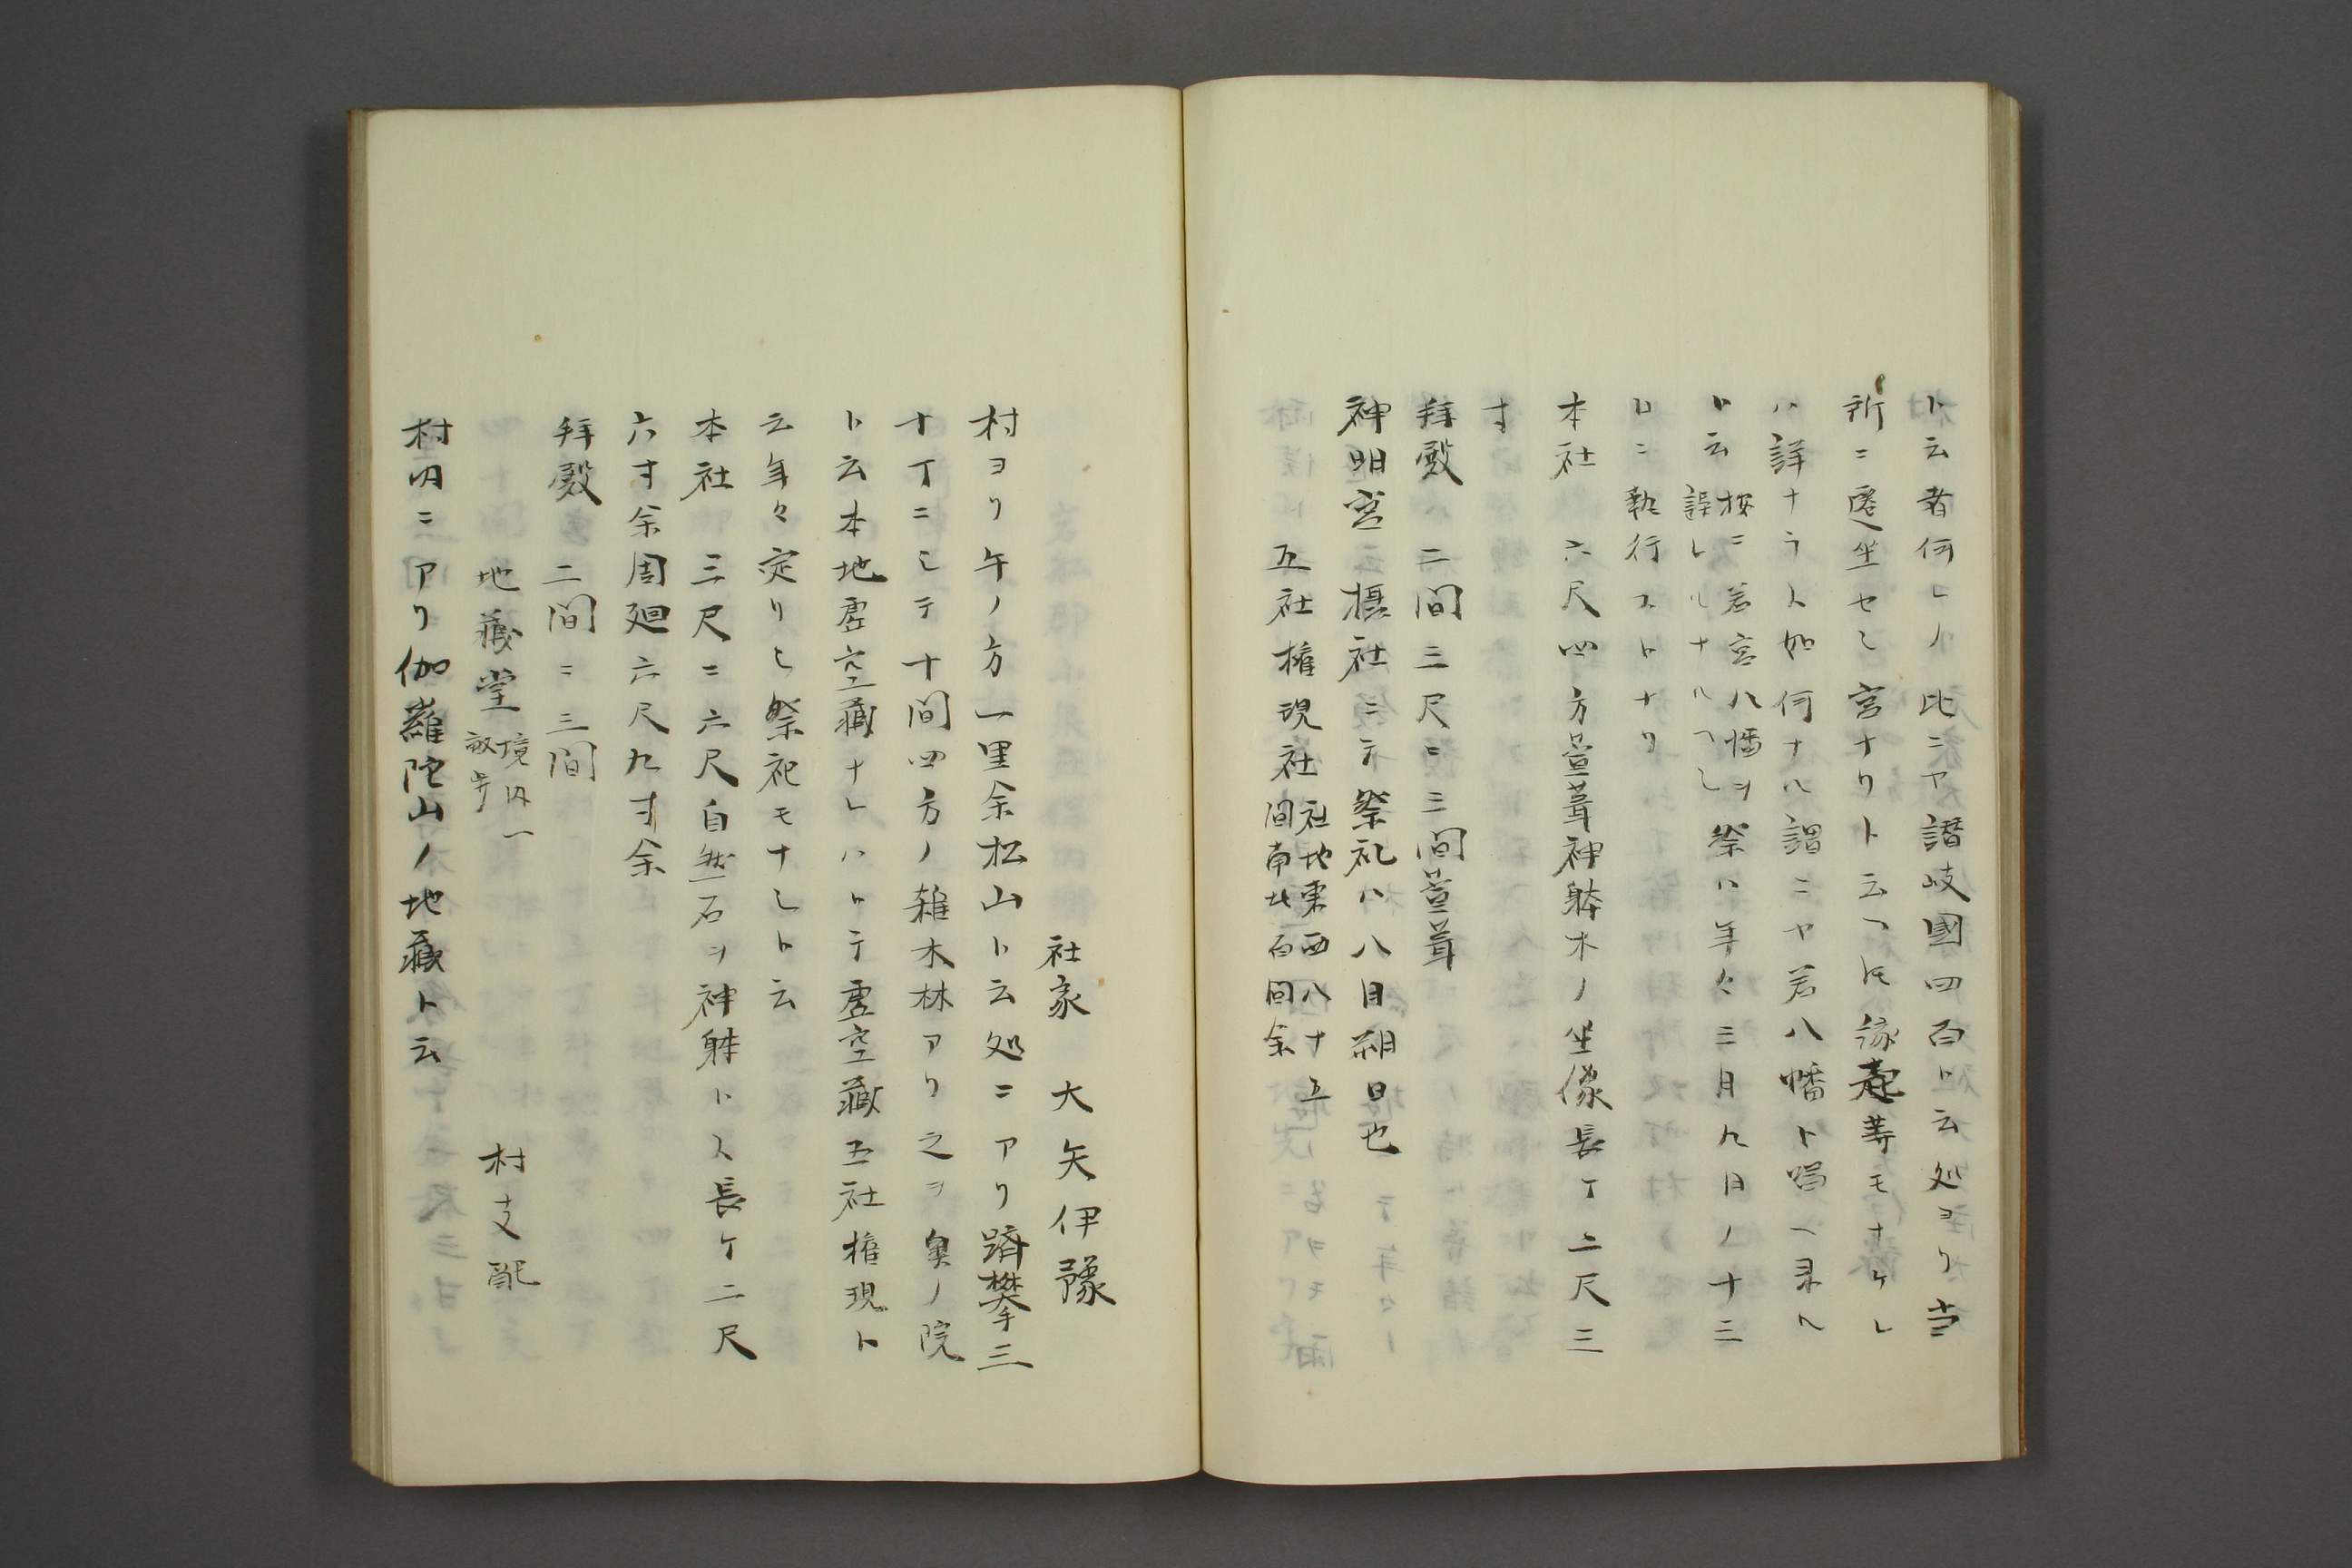 ト云者何レノ比ニヤ讃岐國四百ト云処ヨリ当
所ニ遷坐セシ宮ナリト云ヘ𪜈縁起等モナケレ
ハ詳ナラス如何ナル謂ニヤ若八幡ト唱ヘ来ル
ト云
按ニ若宮八幡ヲ
誤レルナルヘシ
祭ハ年々三月九月ノ十三
日ニ執行ストナリ
本社 六尺四方萱葺神躰木ノ坐像長ケ二尺三
寸
拜殿 二間三尺ニ三間萱葺
神明宮 摂社ニテ祭礼ハ八月朔日也
五社権現社
社地東西八十五
間南北百間余
社家 大矢伊豫
村ヨリ午ノ方一里余松山ト云処ニアリ躋攀三
十丁ニシテ十間四方ノ雜木林アリ之ヲ奥ノ院
ト云本地虚空藏ナレハトテ虚空藏五社権現ト
云年々定リシ祭祀モナシト云
本社 三尺ニ六尺自然石ヲ神躰トス長ケ二尺
六寸余周廻六尺九寸余
拜殿 二間ニ三間
地藏堂
境内一
畝歩
村支配
村内ニアリ伽羅陀山ノ地藏ト云